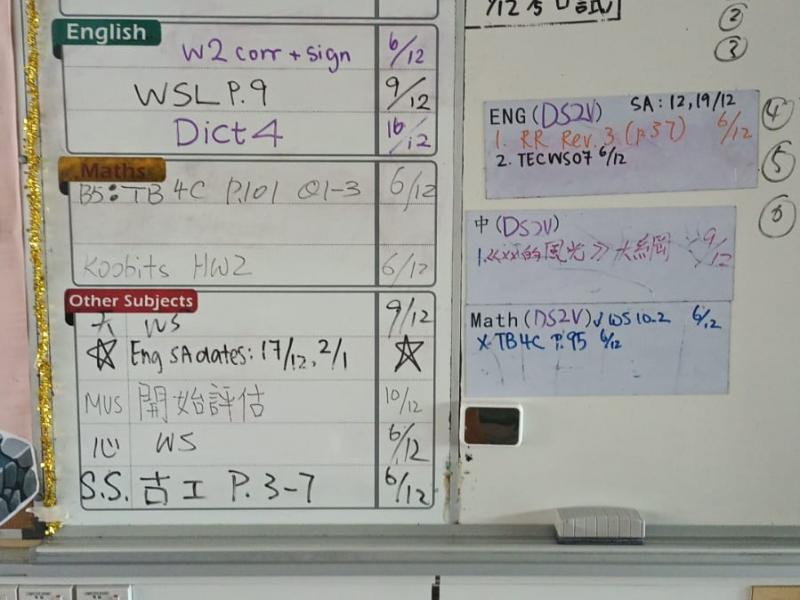 English
W2 corr + sign 6/12
WSL P.9 9/12
Dict 4 16/12
Maths
B5: TB 4C P.101 Q1-3 6/12
Koobits HW2 6/12
Other Subjects
WS 9/12
☆ Eng SA dates: 17/12, 2/1 ☆
MUS 開始評估 10/12
心 WS 6/12
S.S. 古工 P.3-7 6/12
②
③
④
⑤
⑥
ENG (DS2V) SA: 12,19/12
1. RR Rev. 3 (p.37) 6/12
2. TECWS07 6/12
中 (DS2V)
1.《××的風光》大綱 9/12
Math (DS2V) ✓ WS 10.2 6/12
× TB 4C P.95 6/12